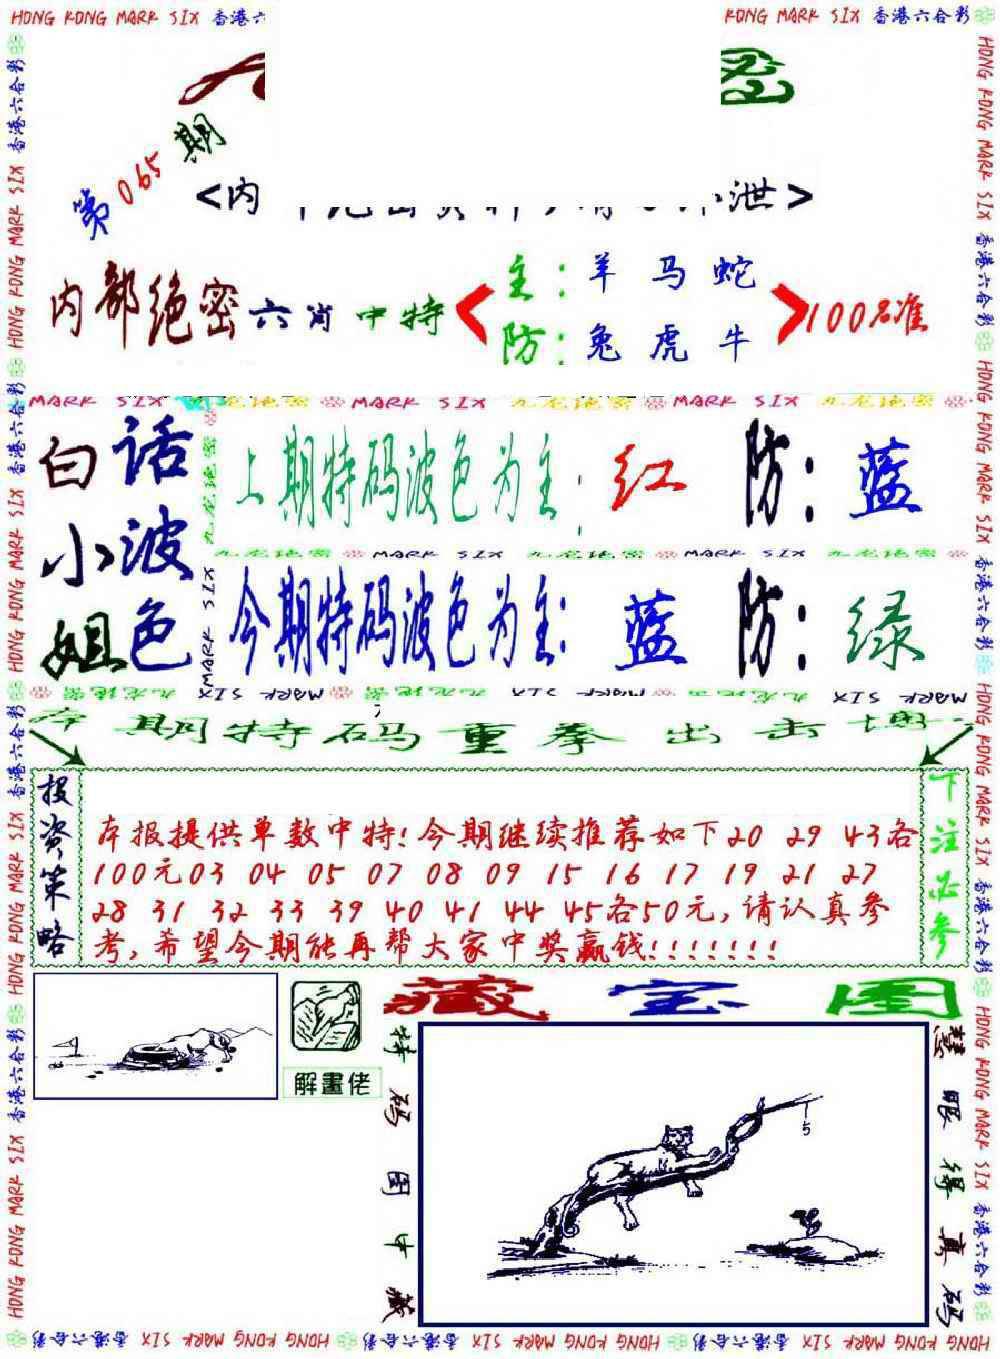 HONG KONG MARK SIX 香港六
KONG MARK SIX 香港六合彩
密
第065期
<内
泄>
内部绝密六肖中特
主：羊 马 蛇
防：兔 虎 牛
100%准
MARK SIX 九龙绝密 MARK SIX 九龙绝密 MARK SIX 九龙绝密
白话
小波
姐色
上期特码波色为主：红 防：蓝
九龙绝密 MARK SIX 九龙绝密 MARK SIX 九龙绝密
今期特码波色为主：蓝 防：绿
本期特码重拳出击
投资策略
本报提供单数中特!今期继续推荐如下20 29 43各
100元03 04 05 07 08 09 15 16 17 19 21 27
28 31 32 33 39 40 41 44 45各50元,请认真参
考,希望今期能再帮大家中奖赢钱!!!!!!!
下注必参
解畫佬
藏宝图
特码图中藏
5
慧眼得真码
HONG KONG MARK SIX 香港六合彩